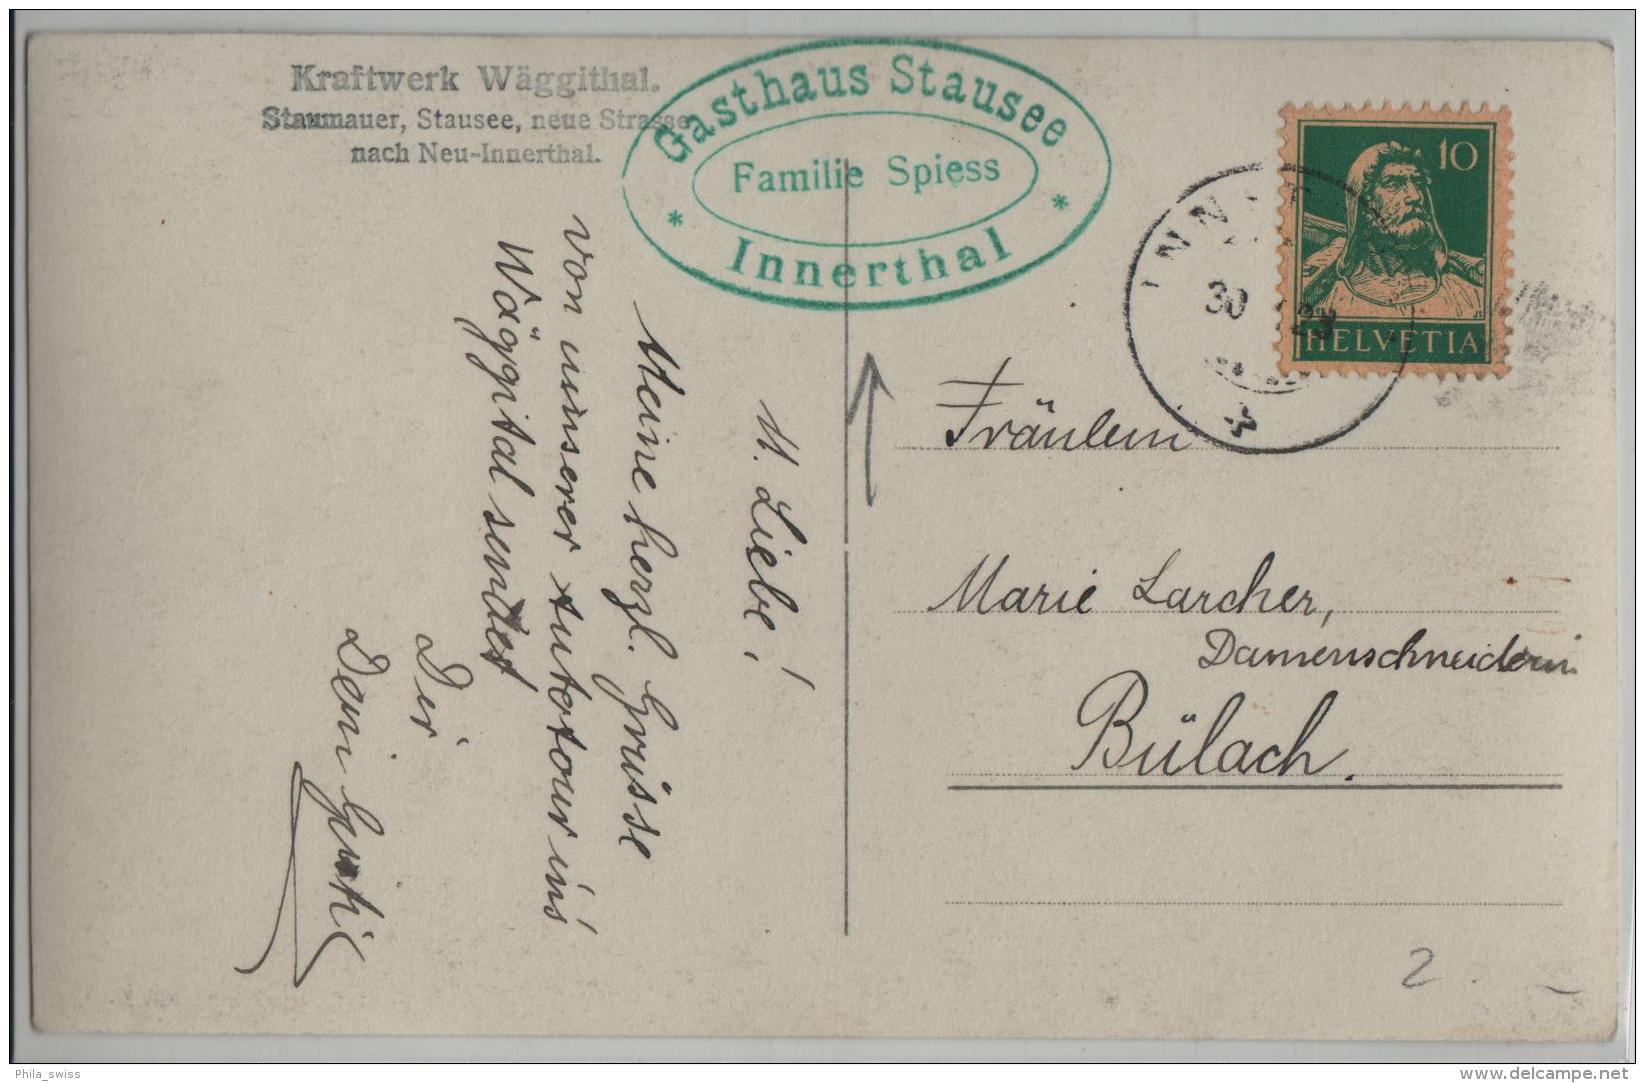 Kraftwerk Wäggithal.
Staumauer, Stausee, neue Strasse
nach Neu-Innerthal.
Gasthaus Stausee
Familie Spiess
* Innerthal *
10
HELVETIA
INN
30
Fräulein
Marie Larcher,
Damenschneiderin
Bülach.
M. Liebe!
Meine herzl. Grüsse
von unserer Autotour ins
Wäggital sendet
Dir
Dein
2.
Phila_swiss
www.delcampe.net